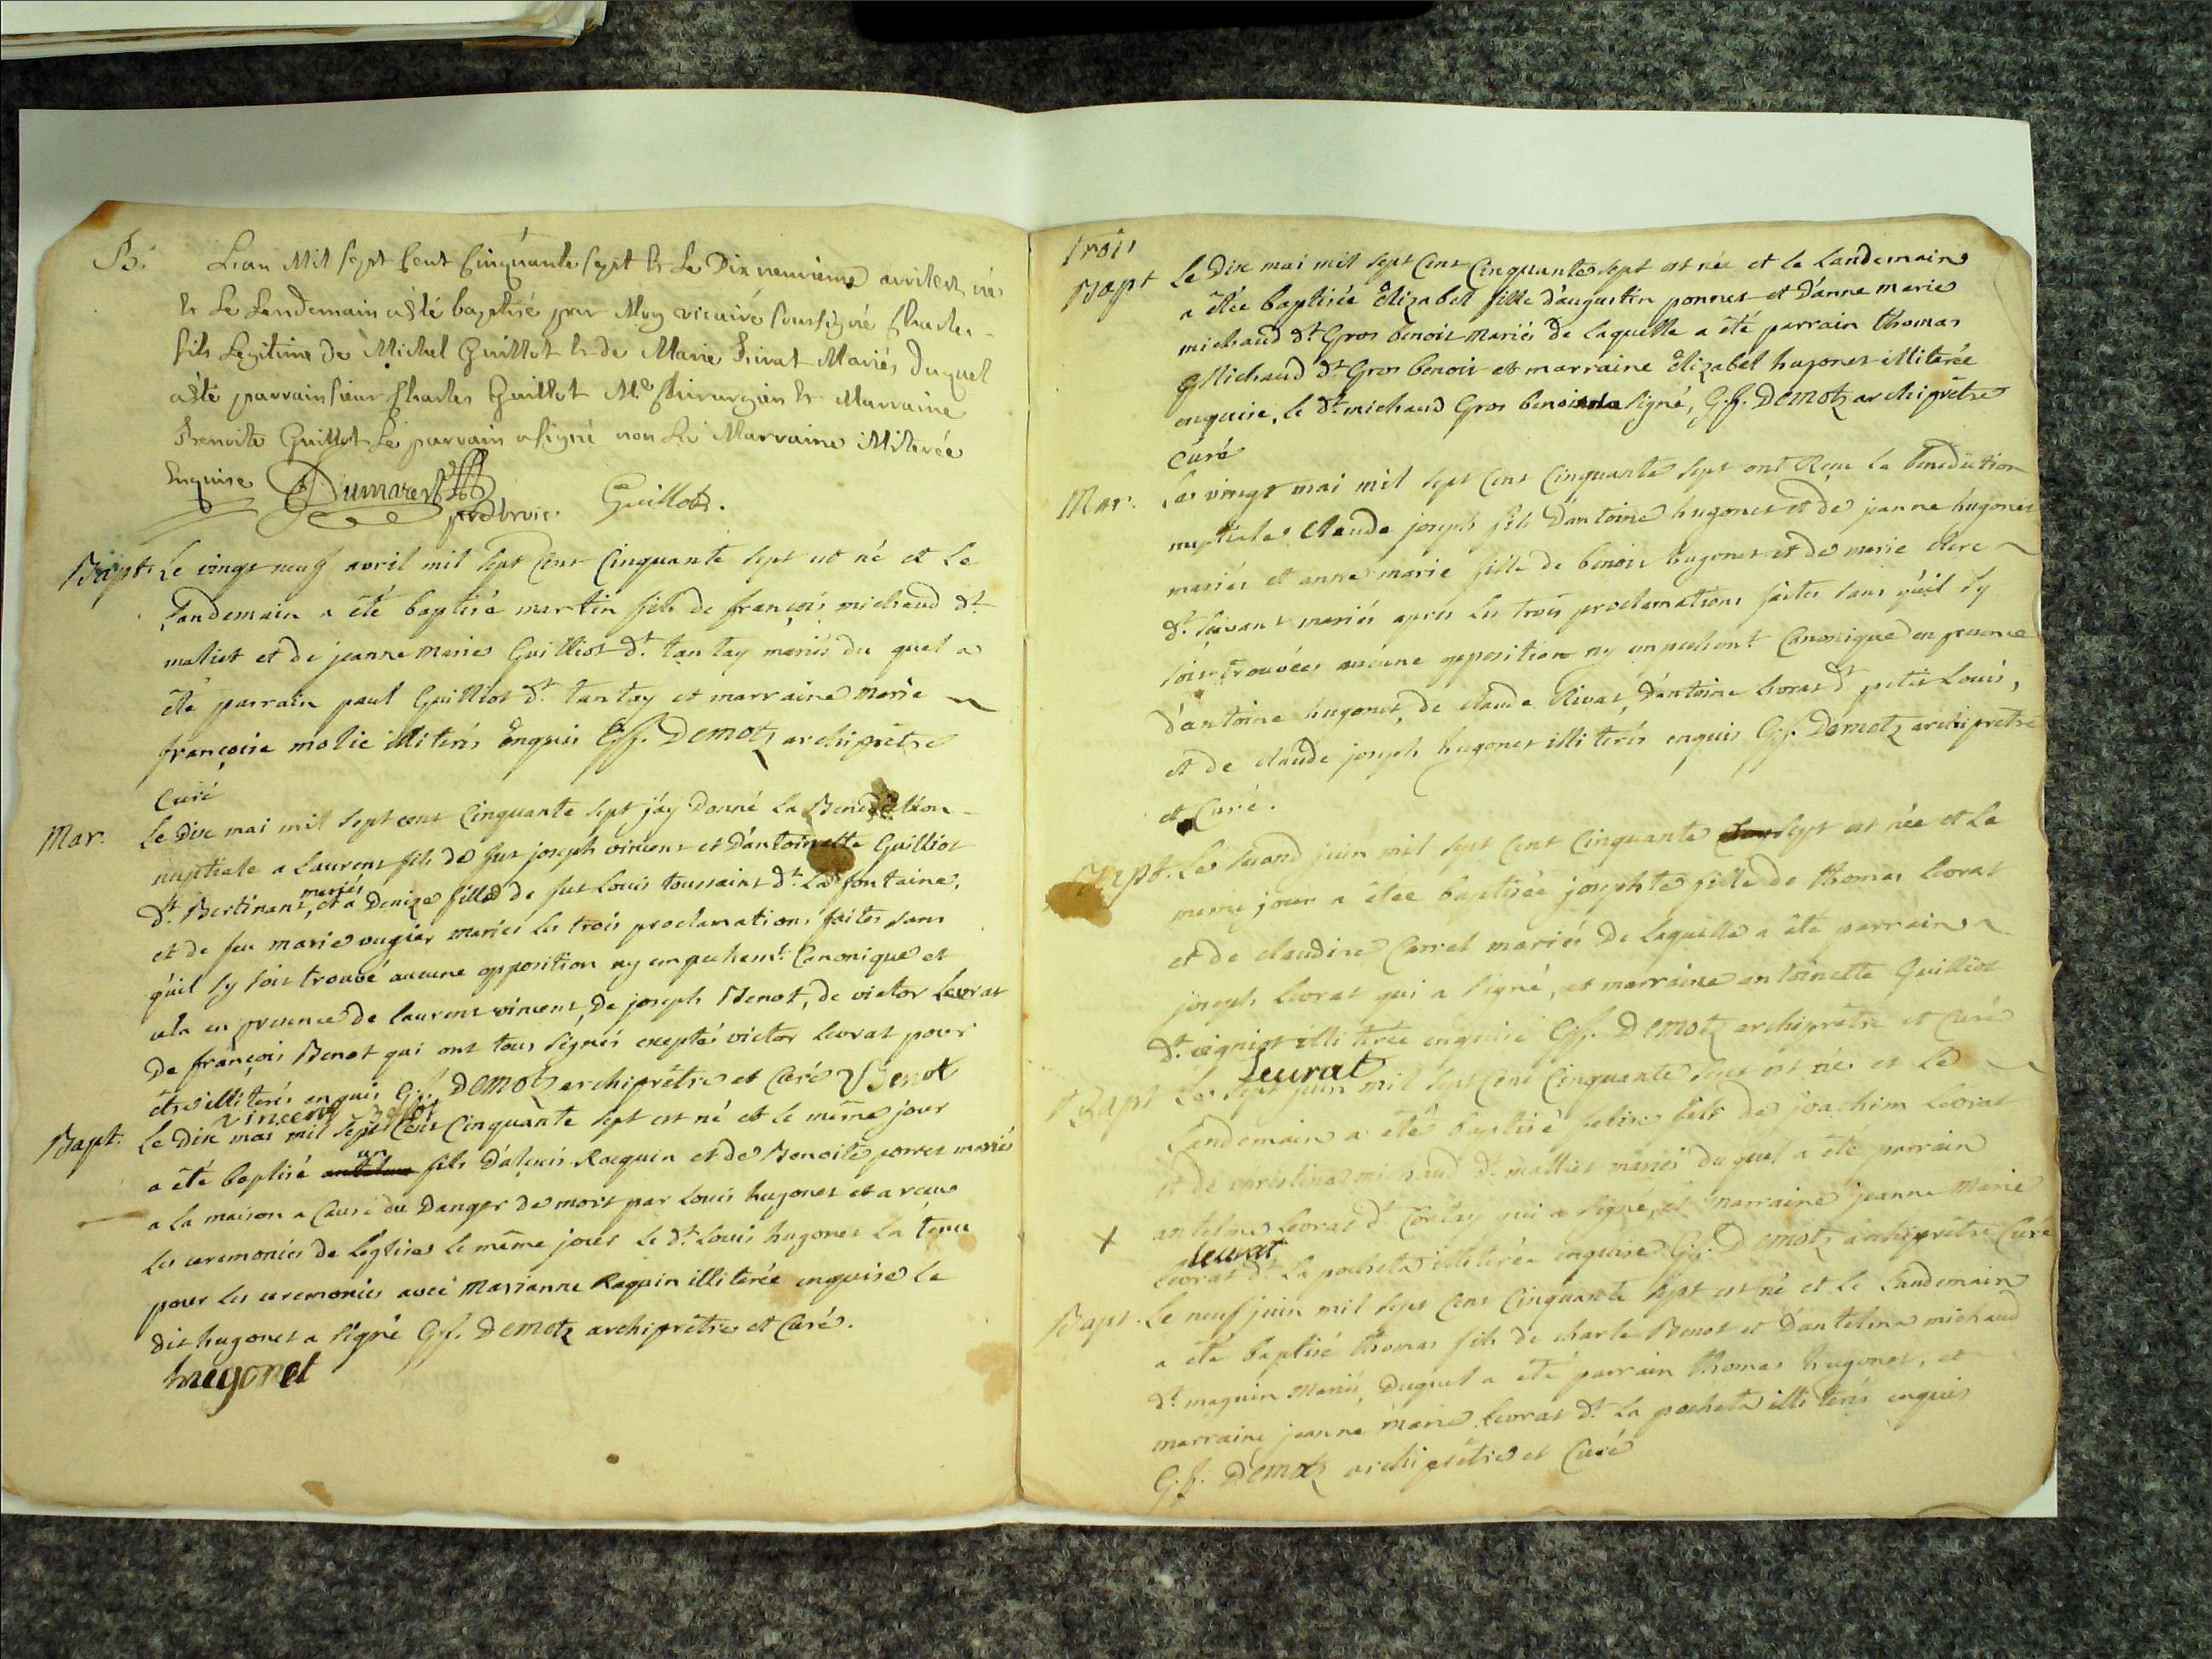 B. L'an Mil sept Cent Cinquante sept & Le Dix neuvieme avril est né
& Le Lendemain a été baptisé par Moy vicaire soussigné Charles
fils Legitime de Michel Guillot & de Marie Mariés Duquel
a été parrain sieur Charles Guillot Me Chirurgien & Marraine
Benoite Guillot Le parrain a signé non La Marraine illiterée
Enquise Dumarest Guillot.
Bapt. Le vingt neuf avril mil sept Cent Cinquante sept est né et Le
Landemain a été baptisé martin fils de françois michaud dt
maliet et de jeanne Marie Guilliot dt tantay mariés du quel a
été parrain paul Guilliot dt tantay et marraine Marie
françoise molie illiterés Enquis Gf. Demotz archiprêtre
Curé
Mar. Le Dix mai mil sept cent Cinquante sept j'ay Donné La Benediction
nuptiale a Laurent fils de feu joseph vincent et D'antoinette Guilliot
mariés
dt Bertinant, et a Denize fille de feu Louis toussaint dt La fontaine,
et de feu marie ougier mariés les trois proclamations faites sans
qu'il sy soit trouvé aucune opposition ny empechemt Canonique et
cela en presence de laurent vincent, De joseph Benot, de victor Levrat
De françois Benot qui ont tous signés exepté victor levrat pour
être illiterés enquis G.f. Demotz archiprêtre et Curé Benot
vincent Benot
Bapt. Le Dix mai mil sept Cent Cinquante sept est né et le même jour
un
a été baptisé fils D'alexis Raquin et de Benoite ponnet mariés
a la maison a Cause du Danger de mort par Louis hugonet et a receu
les ceremonies de L'eglise le même jour Le dt Louis hugonet la tenu
pour les ceremonies avec Marianne Raquin illiterée enquise le
dit hugonet a signé Gf. Demotz archiprêtre et Curé.
hugonet
trois
Bapt Le Dix mai mil sept Cent Cinquante sept est née et le Landemain
a étée baptisée Elizabet fille d'augustin ponnet et D'anne marie
michaud dt Gros benoit Mariés de laquelle a été parrain thomas
Michaud dt Gros benoit et marraine Elizabet hugonet illiterée
enquise, le dt michaud Gros benoit a signé, G.f. Demotz archiprêtre
Curé
Mar. Le vingt mai mil sept Cent Cinquante sept ont Reçu La benediction
nuptiale Claude joseph fils D'antoine hugonet et de jeanne hugonet
mariés et anne marie fille de benoit hugonet et de marie clerc
dt mariés apres les trois proclamations faites sans qu'il sy
soit trouvées aucune opposition ny empechemt Canonique en presence
d'antoine hugonet, de claude Rivat, D'antoine levrat dt petit Louis,
et de claude joseph hugonet illiterés enquis G.f. Demotz archiprêtre
et Curé.
Bapt. Le second juin mil sept Cent Cinquante sept est née et Le
meme jour a étée baptisée josephte fille de thomas levrat
et de claudine Carrel mariés De Laquelle a été parrain
joseph levrat qui a signé, et marraine antoinette Guilliot
dt illiterée enquise Gf. Demotz archiprêtre et Curé
Leurat
Bapt Le sept juin mil sept Cent Cinquante sept est né et Le
Landemain a été baptisé fils de joachim Levrat
et de christine michaud dt malliet mariés duquel a été parrain
X antelme levrat dt qui a signé, et marraine jeanne Marie
leurat
levrat dt La pocheta illiterée enquise G.f. Demotz archiprêtre Curé
Bapt. Le neuf juin mil sept Cent Cinquante sept est né et Le Landemain
a été baptisé thomas fils de charle Benot et D'antelma michaud
dt magnin Mariés, Duquel a été parrain thomas hugonet, et
marraine jeanne Marie levrat dt La pocheta illiterés enquis
G.f. Demotz archiprêtre et Curé